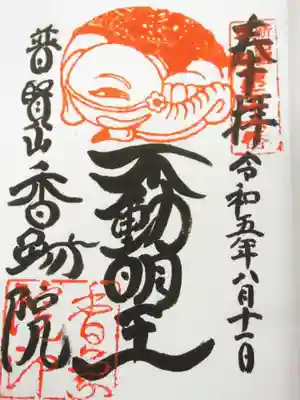 奉拝
令和五年八月十一日
不動明王
普賢山香跡院